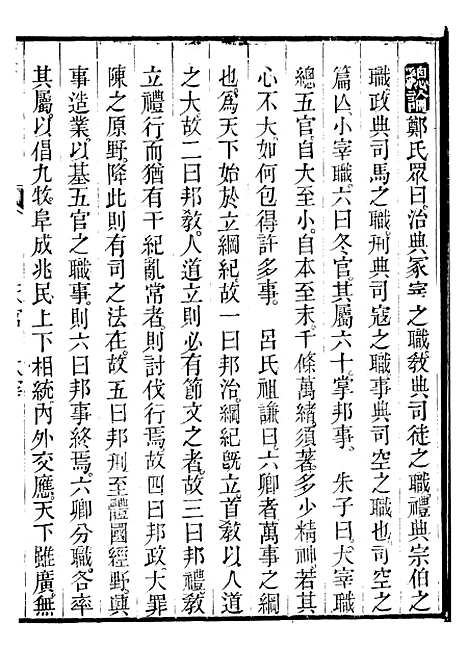 總論鄭氏眾曰。治典冢宰之職。敎典司徒之職。禮典宗伯之
職。政典司馬之職。刑典司寇之職。事典司空之職也。司空
篇亡。小宰職。六曰冬官。其屬六十。掌邦事。 朱子曰。大宰職
總五官。自大至小。自本至末。千條萬緒。須著多少精神。若其
心不大。如何包得許多事。 呂氏祖謙曰。六卿者萬事之綱
也。爲天下始於立綱紀。故一曰邦治。綱紀旣立。首敎以人道
之大。故二曰邦敎。人道立則必有節文之者。故三曰邦禮。敎
立禮行而猶有干紀亂常者。則討伐行焉。故四曰邦政。大罪
陳之原野。降此則有司之法在。故五曰邦刑。至體國經野。興
事造業。以基五官之職事。則六曰邦事終焉。六卿分職。各率
其屬。以倡九牧。阜成兆民。上下相統。內外交應。天下雖廣。無
天官 大宰